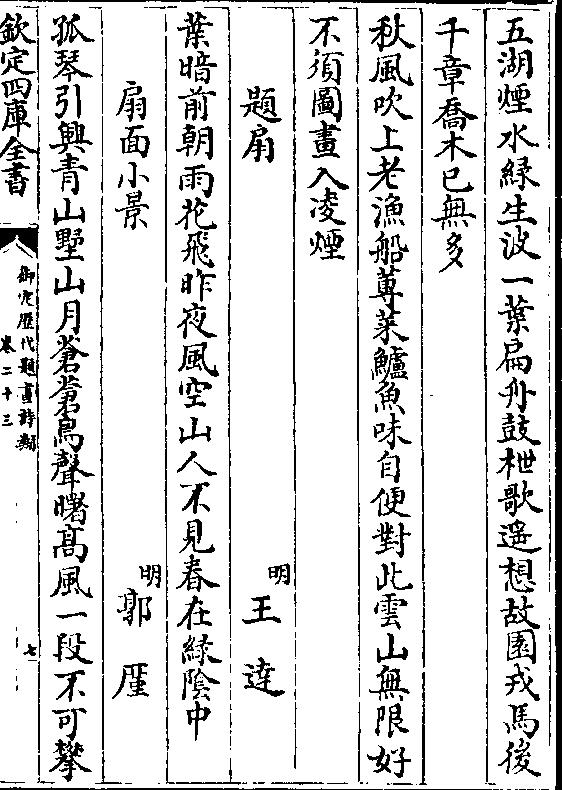 五湖煙水緑生波一葉扁舟鼓枻歌遥想故園戎馬後
千章喬木已無多
秋風吹上老漁船蓴菜鱸魚味自便對此雲山無限好
不須圖畫入凌煙
題扇
明王達
葉暗前朝雨花飛昨夜風空山人不見春在緑陰中
扇面小景
明郭厘
孤琴引興青山墅山月蒼蒼鳥聲曙髙風一段不可攀
欽定四庫全書
御定歴代題畫詩類
卷二十三
七